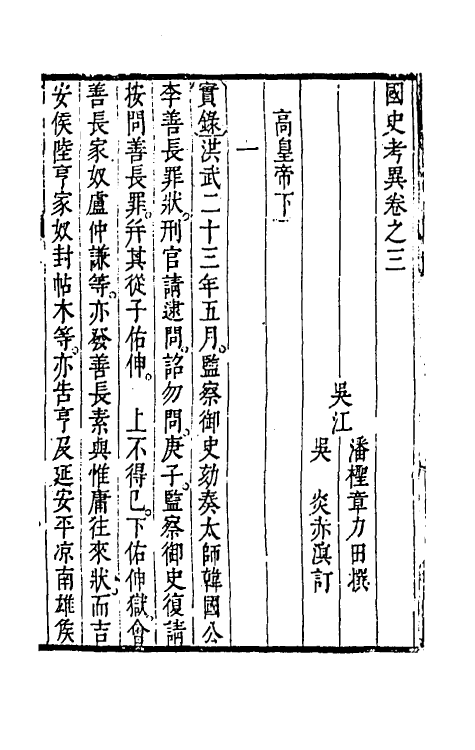 國史考異卷之三
吳江
潘檉章力田撰
吳　炎赤溟訂
高皇帝下
一
實錄洪武二十三年五月。監察御史劾奏太師韓國公
李善長罪狀。刑官請逮問。詔勿問。庚子。監察御史復請
按問善長罪。并其從子佑伸。　上不得已。下佑伸獄。會
善長家奴盧仲謙等。亦發善長素與惟庸往來狀。而吉
安侯陸亨家奴封帖木等。亦告亨及延安平凉南雄侯